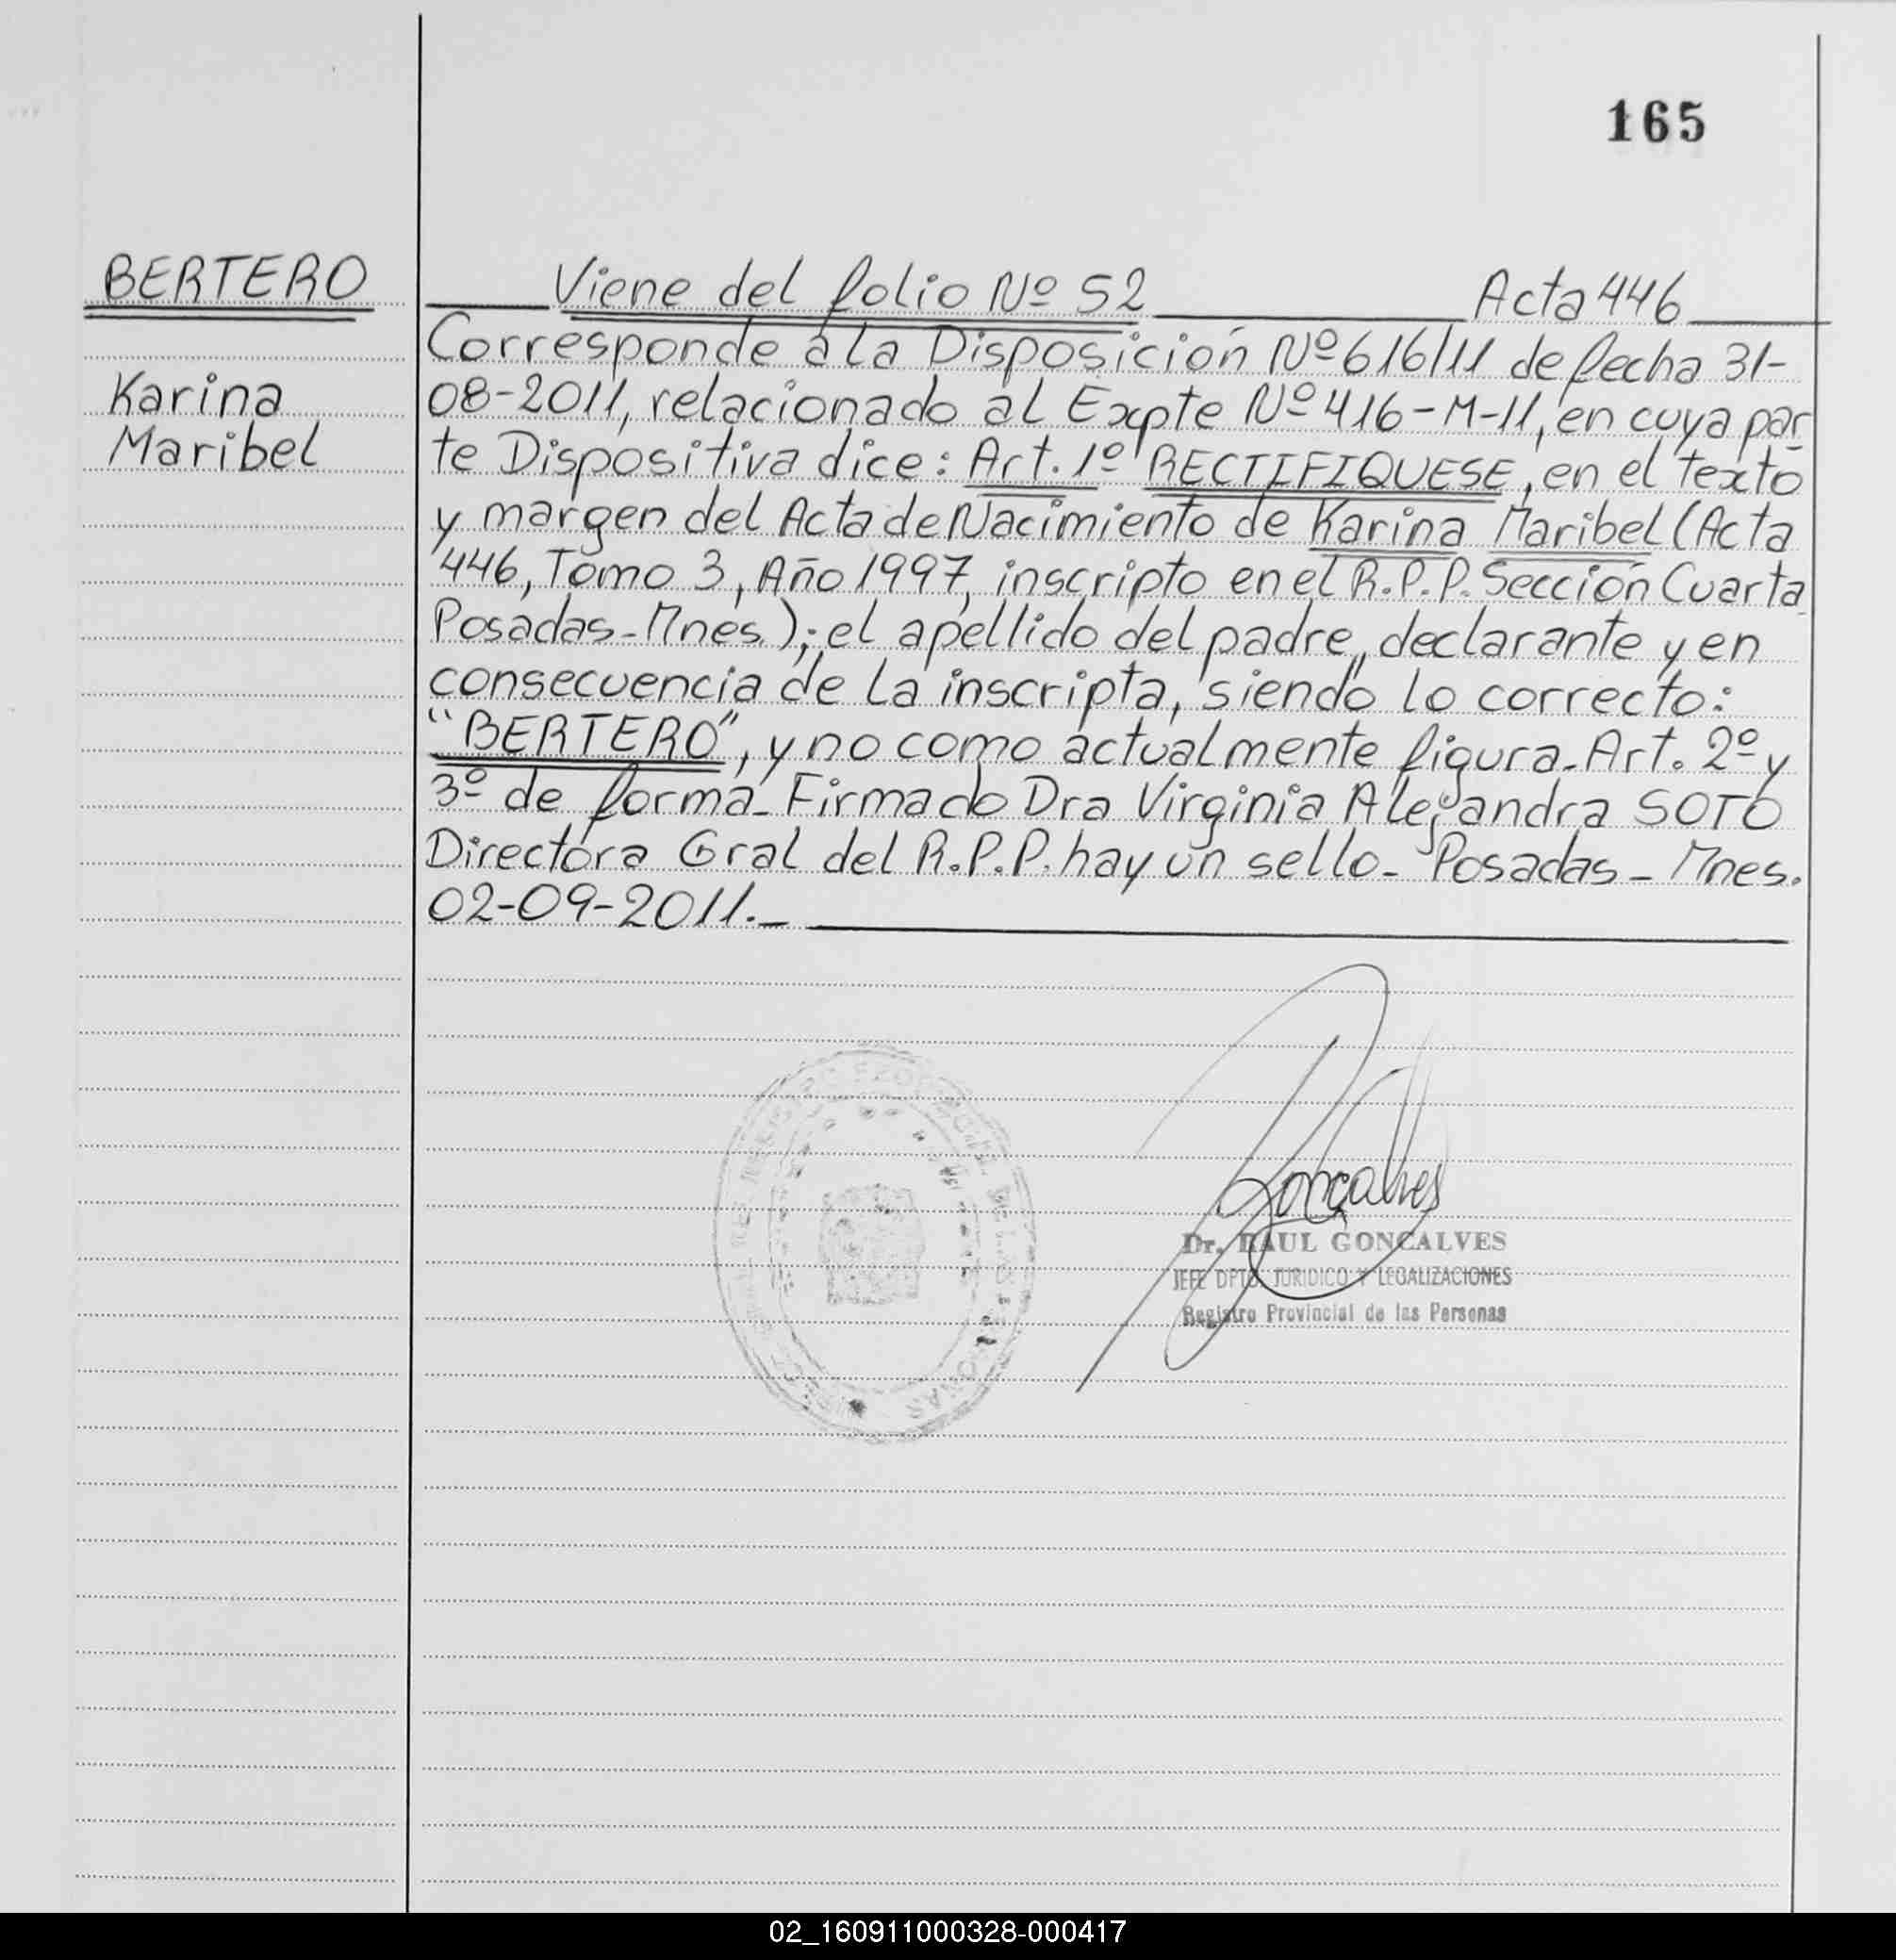 165
BERTERO
Karina
Maribel
Viene del folio Nº 52 Acta 446
Corresponde a la Disposición Nº 616/11 de fecha 31-
08-2011, relacionado al Expte Nº 416-M-11, en cuya par
te Dispositiva dice: Art. 1º RECTIFIQUESE, en el texto
y margen del Acta de Nacimiento de Karina Maribel (Acta
446, Tomo 3, Año 1997, inscripto en el R.P.P. Sección Cuarta
Posadas-Mnes.); el apellido del padre, declarante y en
consecuencia de la inscripta, siendo lo correcto:
"BERTERO", y no como actualmente figura. Art. 2º y
3º de forma- Firmado Dra Virginia Alejandra SOTO
Directora Gral del R.P.P. hay un sello- Posadas- Mnes.
02-09-2011.-
Gonçalves
Dr. RAUL GONCALVES
JEFE DPTO. JURIDICO Y LEGALIZACIONES
Registro Provincial de las Personas
02_160911000328-000417